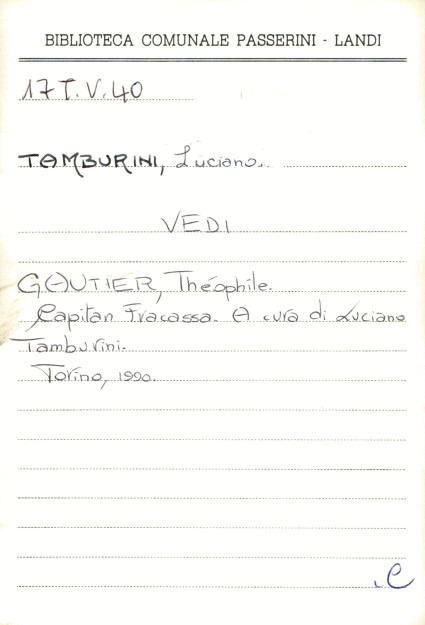 BIBLIOTECA COMUNALE PASSERINI - LANDI
17 T. V. 40
TAMBURINI, Luciano.
VEDI
GAUTIER, Théophile.
Capitan Fracassa. A cura di Luciano
Tamburini.
Torino, 1990.